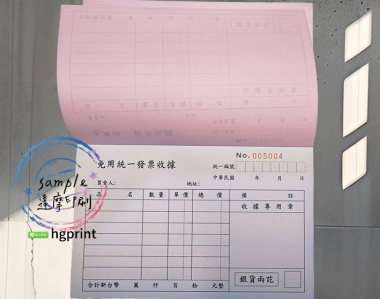 免用統一發票收據
No. 005004
統一編號
中華民國 年 月 日
買受人: 地址:
品 名 數量 單價 總價 備 註
收據專用章
銀貨兩訖
合計新台幣 萬 仟 百 拾 元整
sample
達摩印刷
hgprint